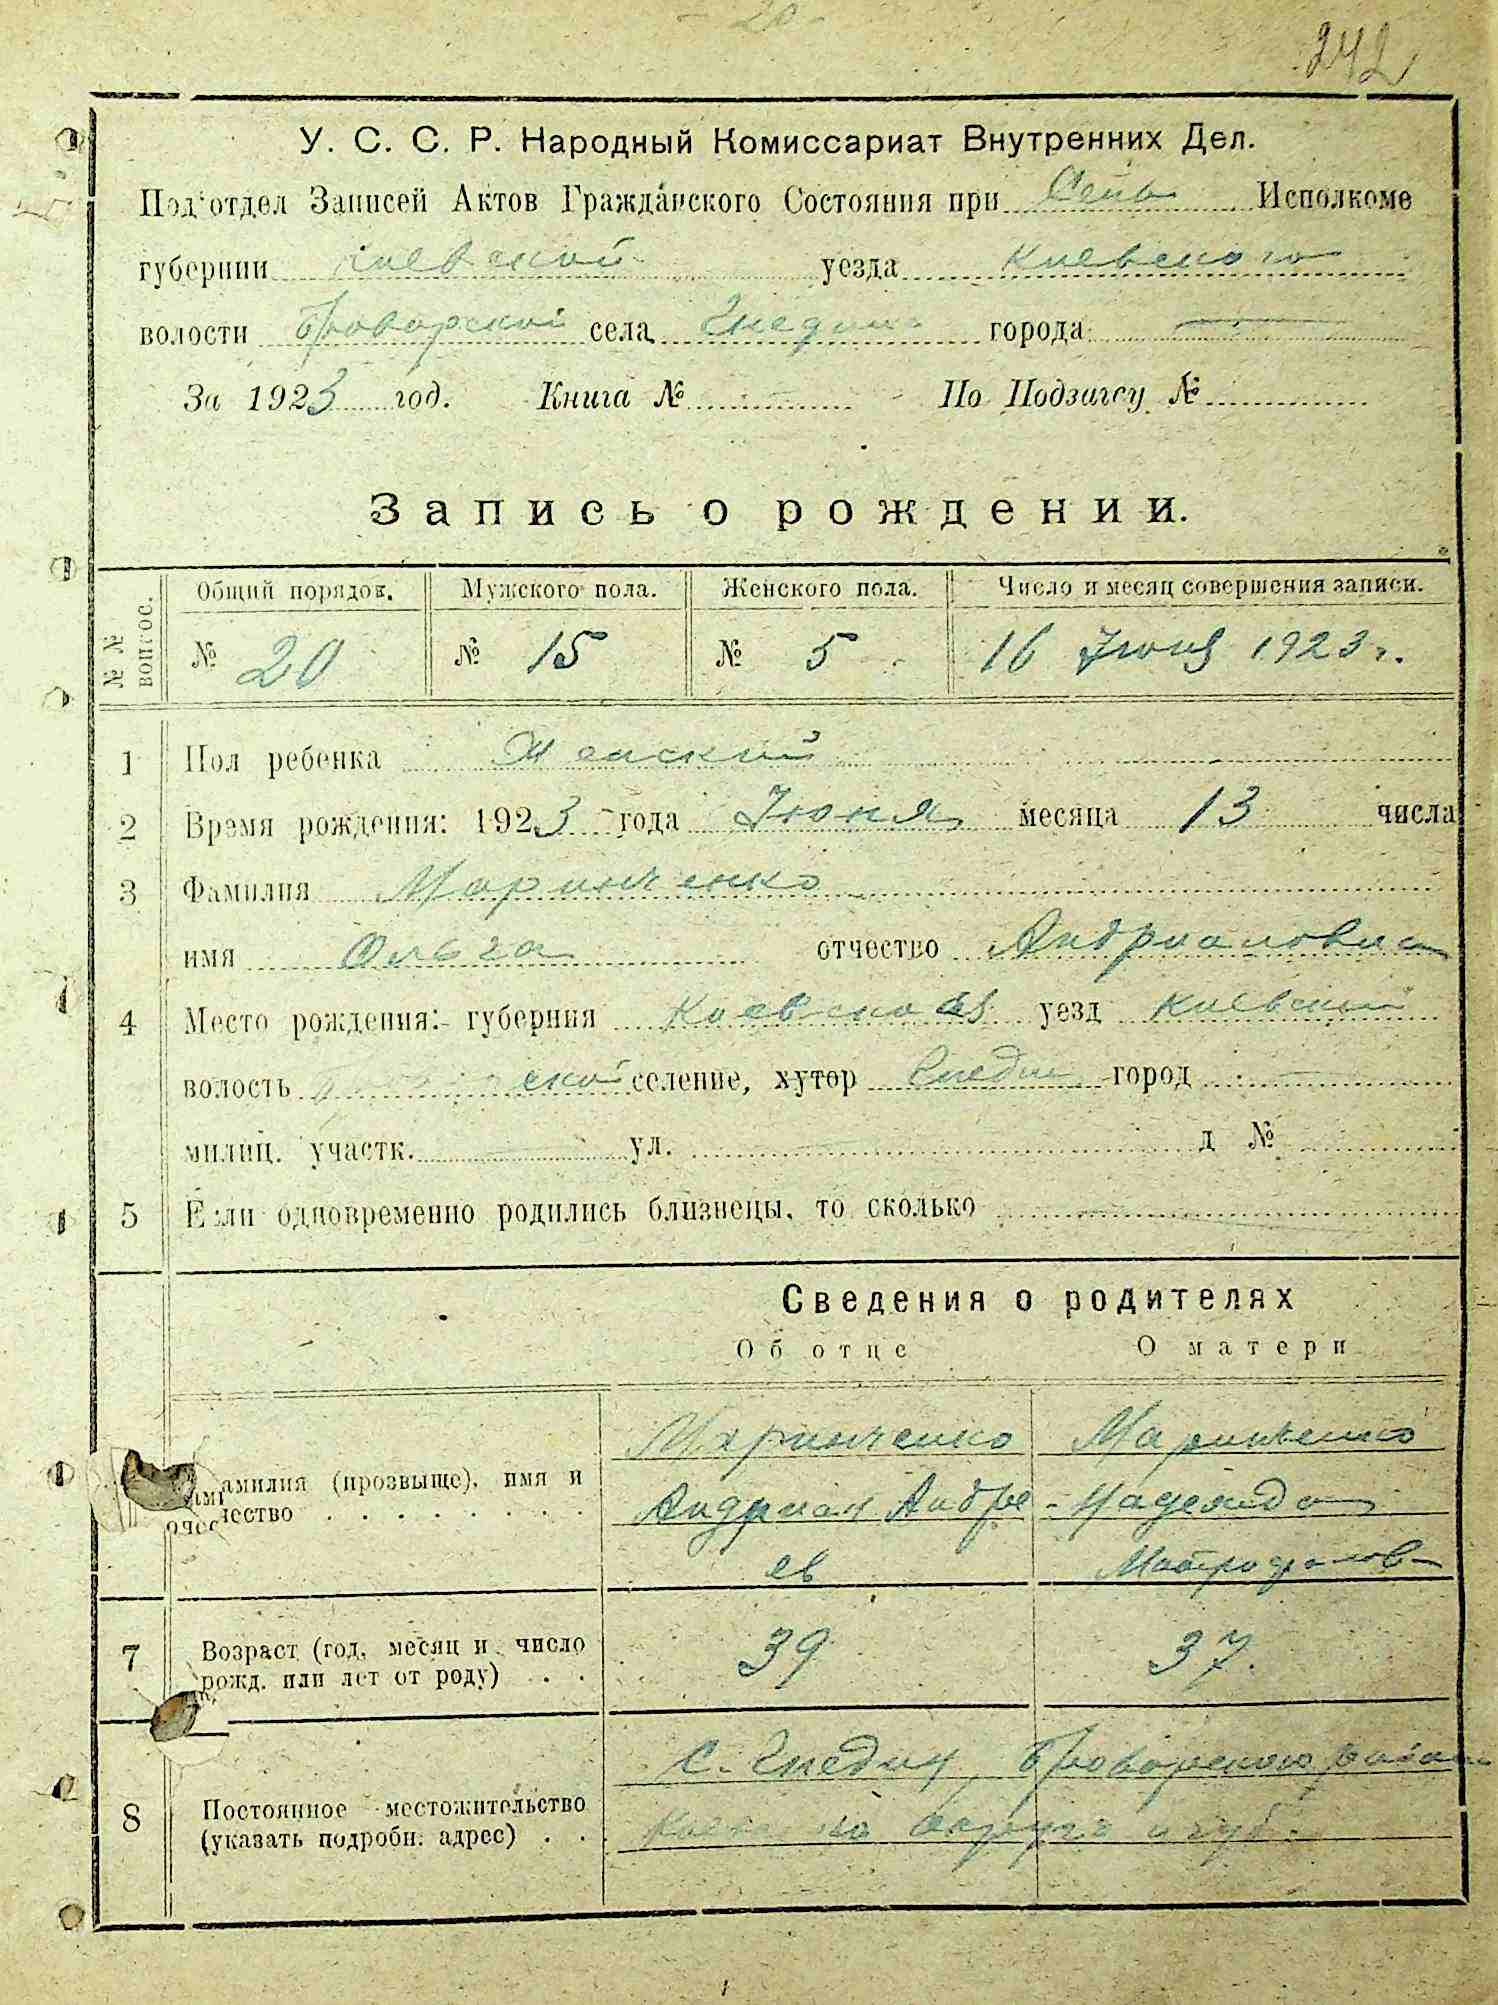 - 20 -
242
У. С. С. Р. Народный Комиссариат Внутренних Дел.
Под‘отдел Записей Актов Гражданского Состояния при Сель Исполкоме
губернии Киевской уезда Киевского
волости Броварской села Гнедин города —
За 1923 год. Книга № По Подзагсу №
Запись о рождении.
№ № вопрос. Общий порядов. Мужского пола. Женского пола. Число и месяц совершения записи.
№ 20 № 15 № 5 16 Июня 1923 г.
1 Пол ребенка Женский
2 Время рождения: 1923 года Июня месяца 13 числа
3 Фамилия Маринченко
имя Ольга отчество Андриановна
4 Место рождения: губерния Киевская уезд Киевский
волость ской селение, хутор Гнедин город —
милиц. участк. ул. д №
5 Если одновременно родились близнецы, то сколько
Сведения о родителях
Об отце О матери
Маринченко Маринченко
амилия (прозвыще), имя и
Андриан Андре- Надежда
чество
ев Митрофанов-
7 Возраст (год, месяц и число 39 37.
рожд. или лет от роду)
С. Гнедин, Броварского района
8 Постоянное местожительство
(указать подробн. адрес) Киевского округа и губ.